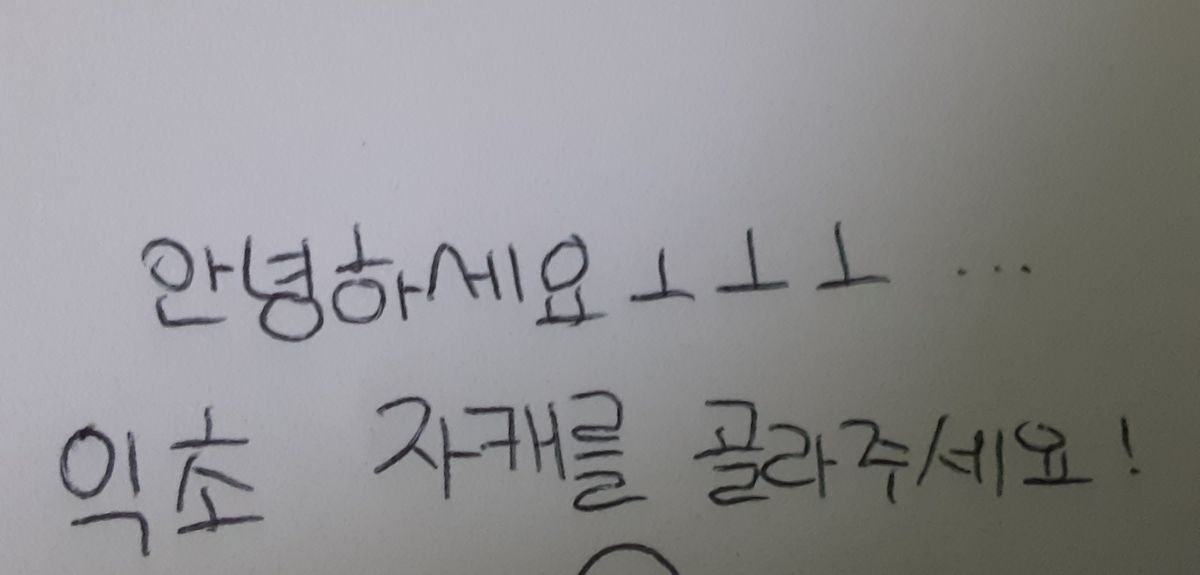 안녕하세요ㅗㅗㅗ ...
익초 자캐를 골라주세요!